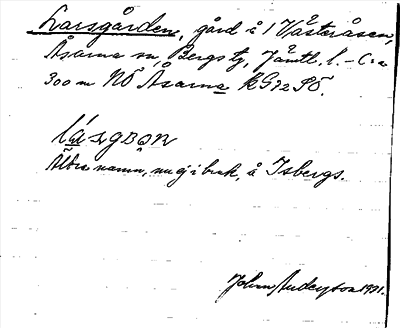 Larsgården, gård å 1 Västeråsen,
Åsarna sn Bergs tg, Jämtl. l. – C:a
300 m NÖ Åsarna kG72 SÖ.
Äldre namn, nu ej i bruk, å Isbergs.
John Anderson 1931.